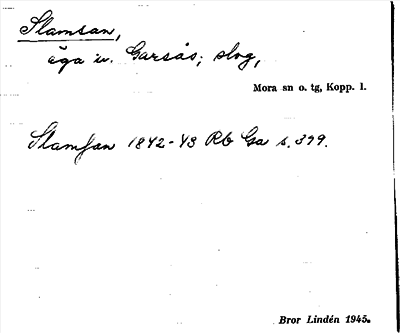 Slamsan,
äga i v. Garsås; slog,
Mora sn o. tg, Kopp. l.
Slamsan 1842-43 Rb Ga s. 399.
Bror Lindén 1945.